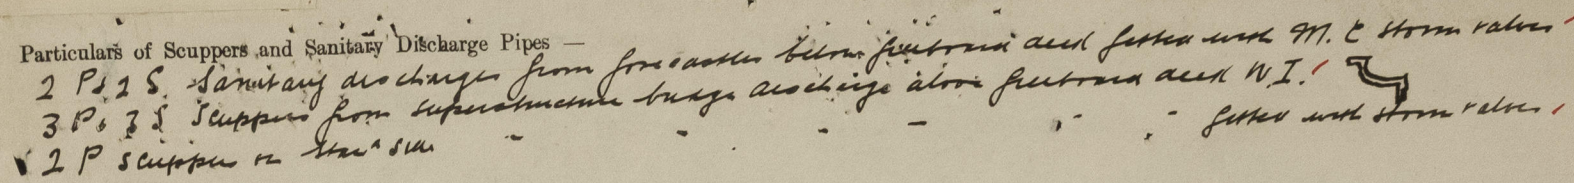 Particulars of Scuppers and Sanitary Discharge Pipes —
2 P & 2 S. Sanitary discharges from forecastle below freeboard deck fitted with M. C storm valves
3 P & 3 S Scuppers from superstructure bridge discharge above freeboard deck W.I.
2 P scupper on star'd side " " " " " " fitted with storm valves